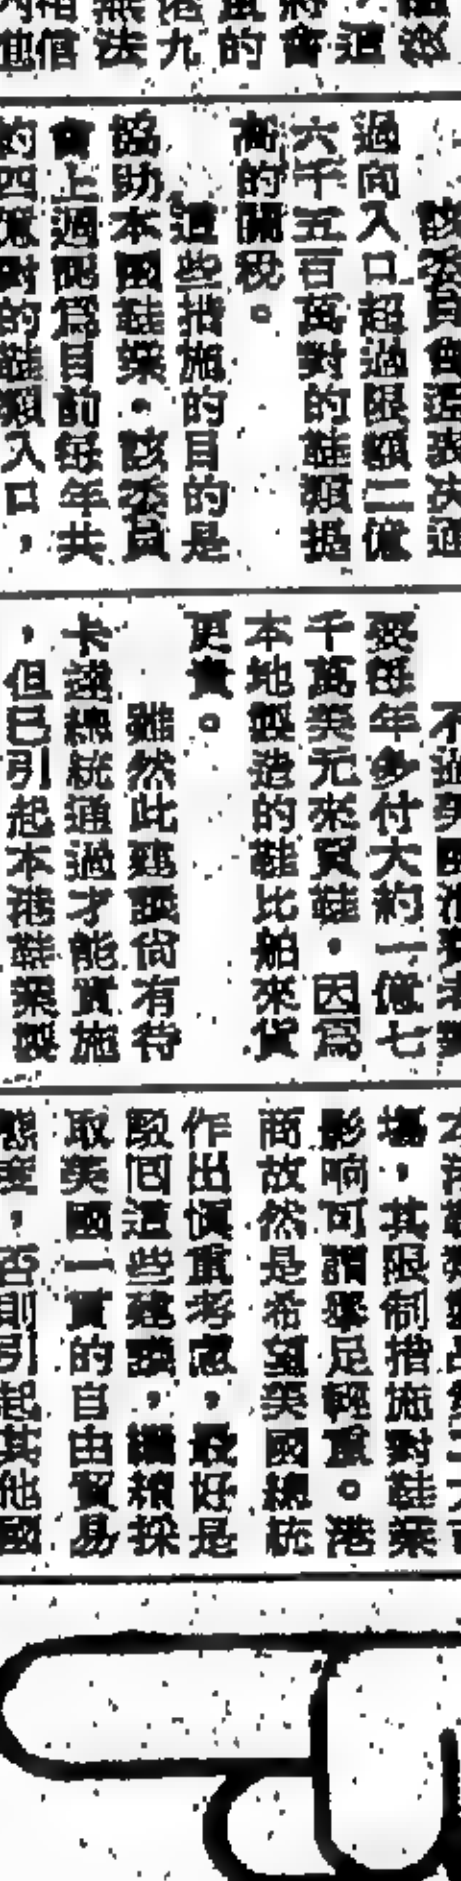 後
這
將會
的
九
法
相信
他
該委員會還表決通
過向入口超過限額二億
六千五百萬對的鞋類提
高的關稅。
這些措施的目的是
協助本國鞋業。該委員
會上週認為目前每年共
的四億對的鞋類入口，
不過美國消費者
要每年多付大約一億七
千萬美元來買鞋。因為
本地製造的鞋比舶來貨
更貴。
雖然此建議尚有待
卡達總統通過才能實施
，但已引起本港鞋業製
場，其限制措施對鞋業
影响可謂舉足輕重。港
商故然是希望美國總統
作出慎重考慮，最好是
駁回這些建議，繼續採
取美國一貫的自由貿易
態度，否則引起其他國